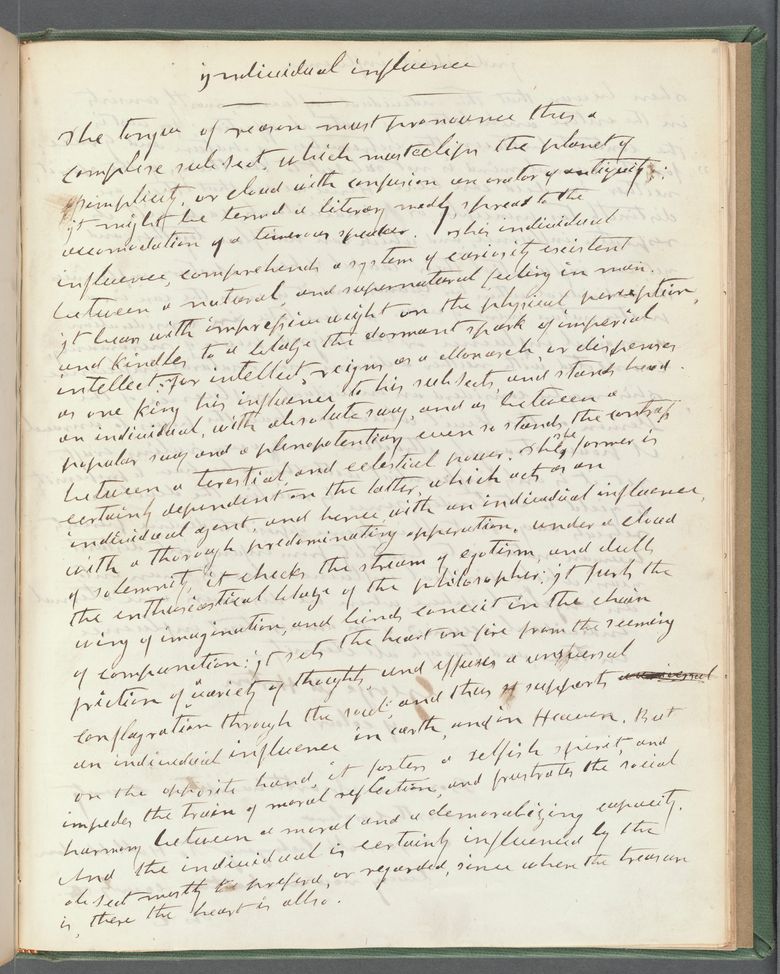 individual influence
The tongue of reason must pronounce thus a
complise subject, which must eclips the planet of
simplicity, or cloud with confusion an orator of antiquity;
it might be termd a literary medly, spread to the
accomodation of a timerous speaker. This individual
influence, comprehends a system of cariosity existent
between a natural, and supernatural feeling in man.
it bears with impressive weight on the physical perception,
and kindles to a blaze the dormant spark of imperial
intellect; for intellect, reigns as a Monarch, or dispenses
as one King his influence to his subjects, and stands head.
an individual, with absolute sway, and as between a
popular sway and a plenopotentiary even so stands the contrast
between a terestial, and celestial power. The former is
certainly dependent on the latter, which acts as an
individual agent, and hence with an individual influence,
with a thorough predominating opperation, under a cloud
of solemnity, it checks the stream of egotism, and dulls
the enthusiastical blaze of the philosopher; it furls the
wing of imagination, and binds conceit in the chain
of compunction: it sets the heart on fire from the seeming
friction of "variety of thought, and effuses a universal
conflagration through the soul; and thus it supports
an individual influence in earth, and in Heaven. But
on the opposite hand, it fosters a selfish spirit, and
impedes the train of moral reflection, and frustrates the social
harmony between a moral and a demoralizing capacity.
And the individual is certainly influenced by the
object mostly to preferd, or regarded, since where the treasure
is, there the heart is allso.